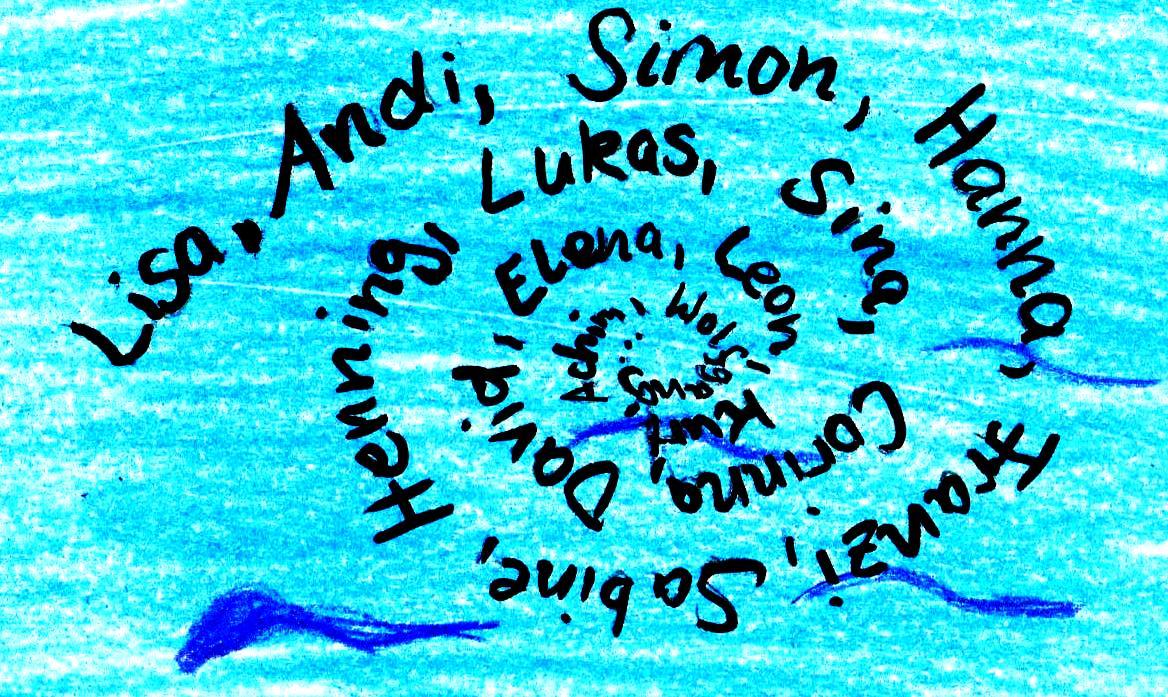 Lisa, Andi, Simon, Hanna, Franzi, Sabine, Henning, Lukas, Sina, Corinna, David, Elena, Leon, Kurt, Achim, Wolfgang